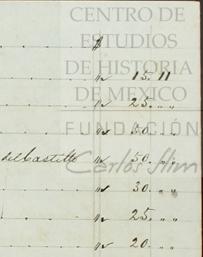 CENTRO DE
$
ESTUDIOS
DE HISTORIA
" 15.11
DE MEXICO
" 25. " "
FUNDACIÓN
" 50. " "
del Castillo " 50. " "
Carlos Slim
" 30. " "
" 25. " "
" 20. " "